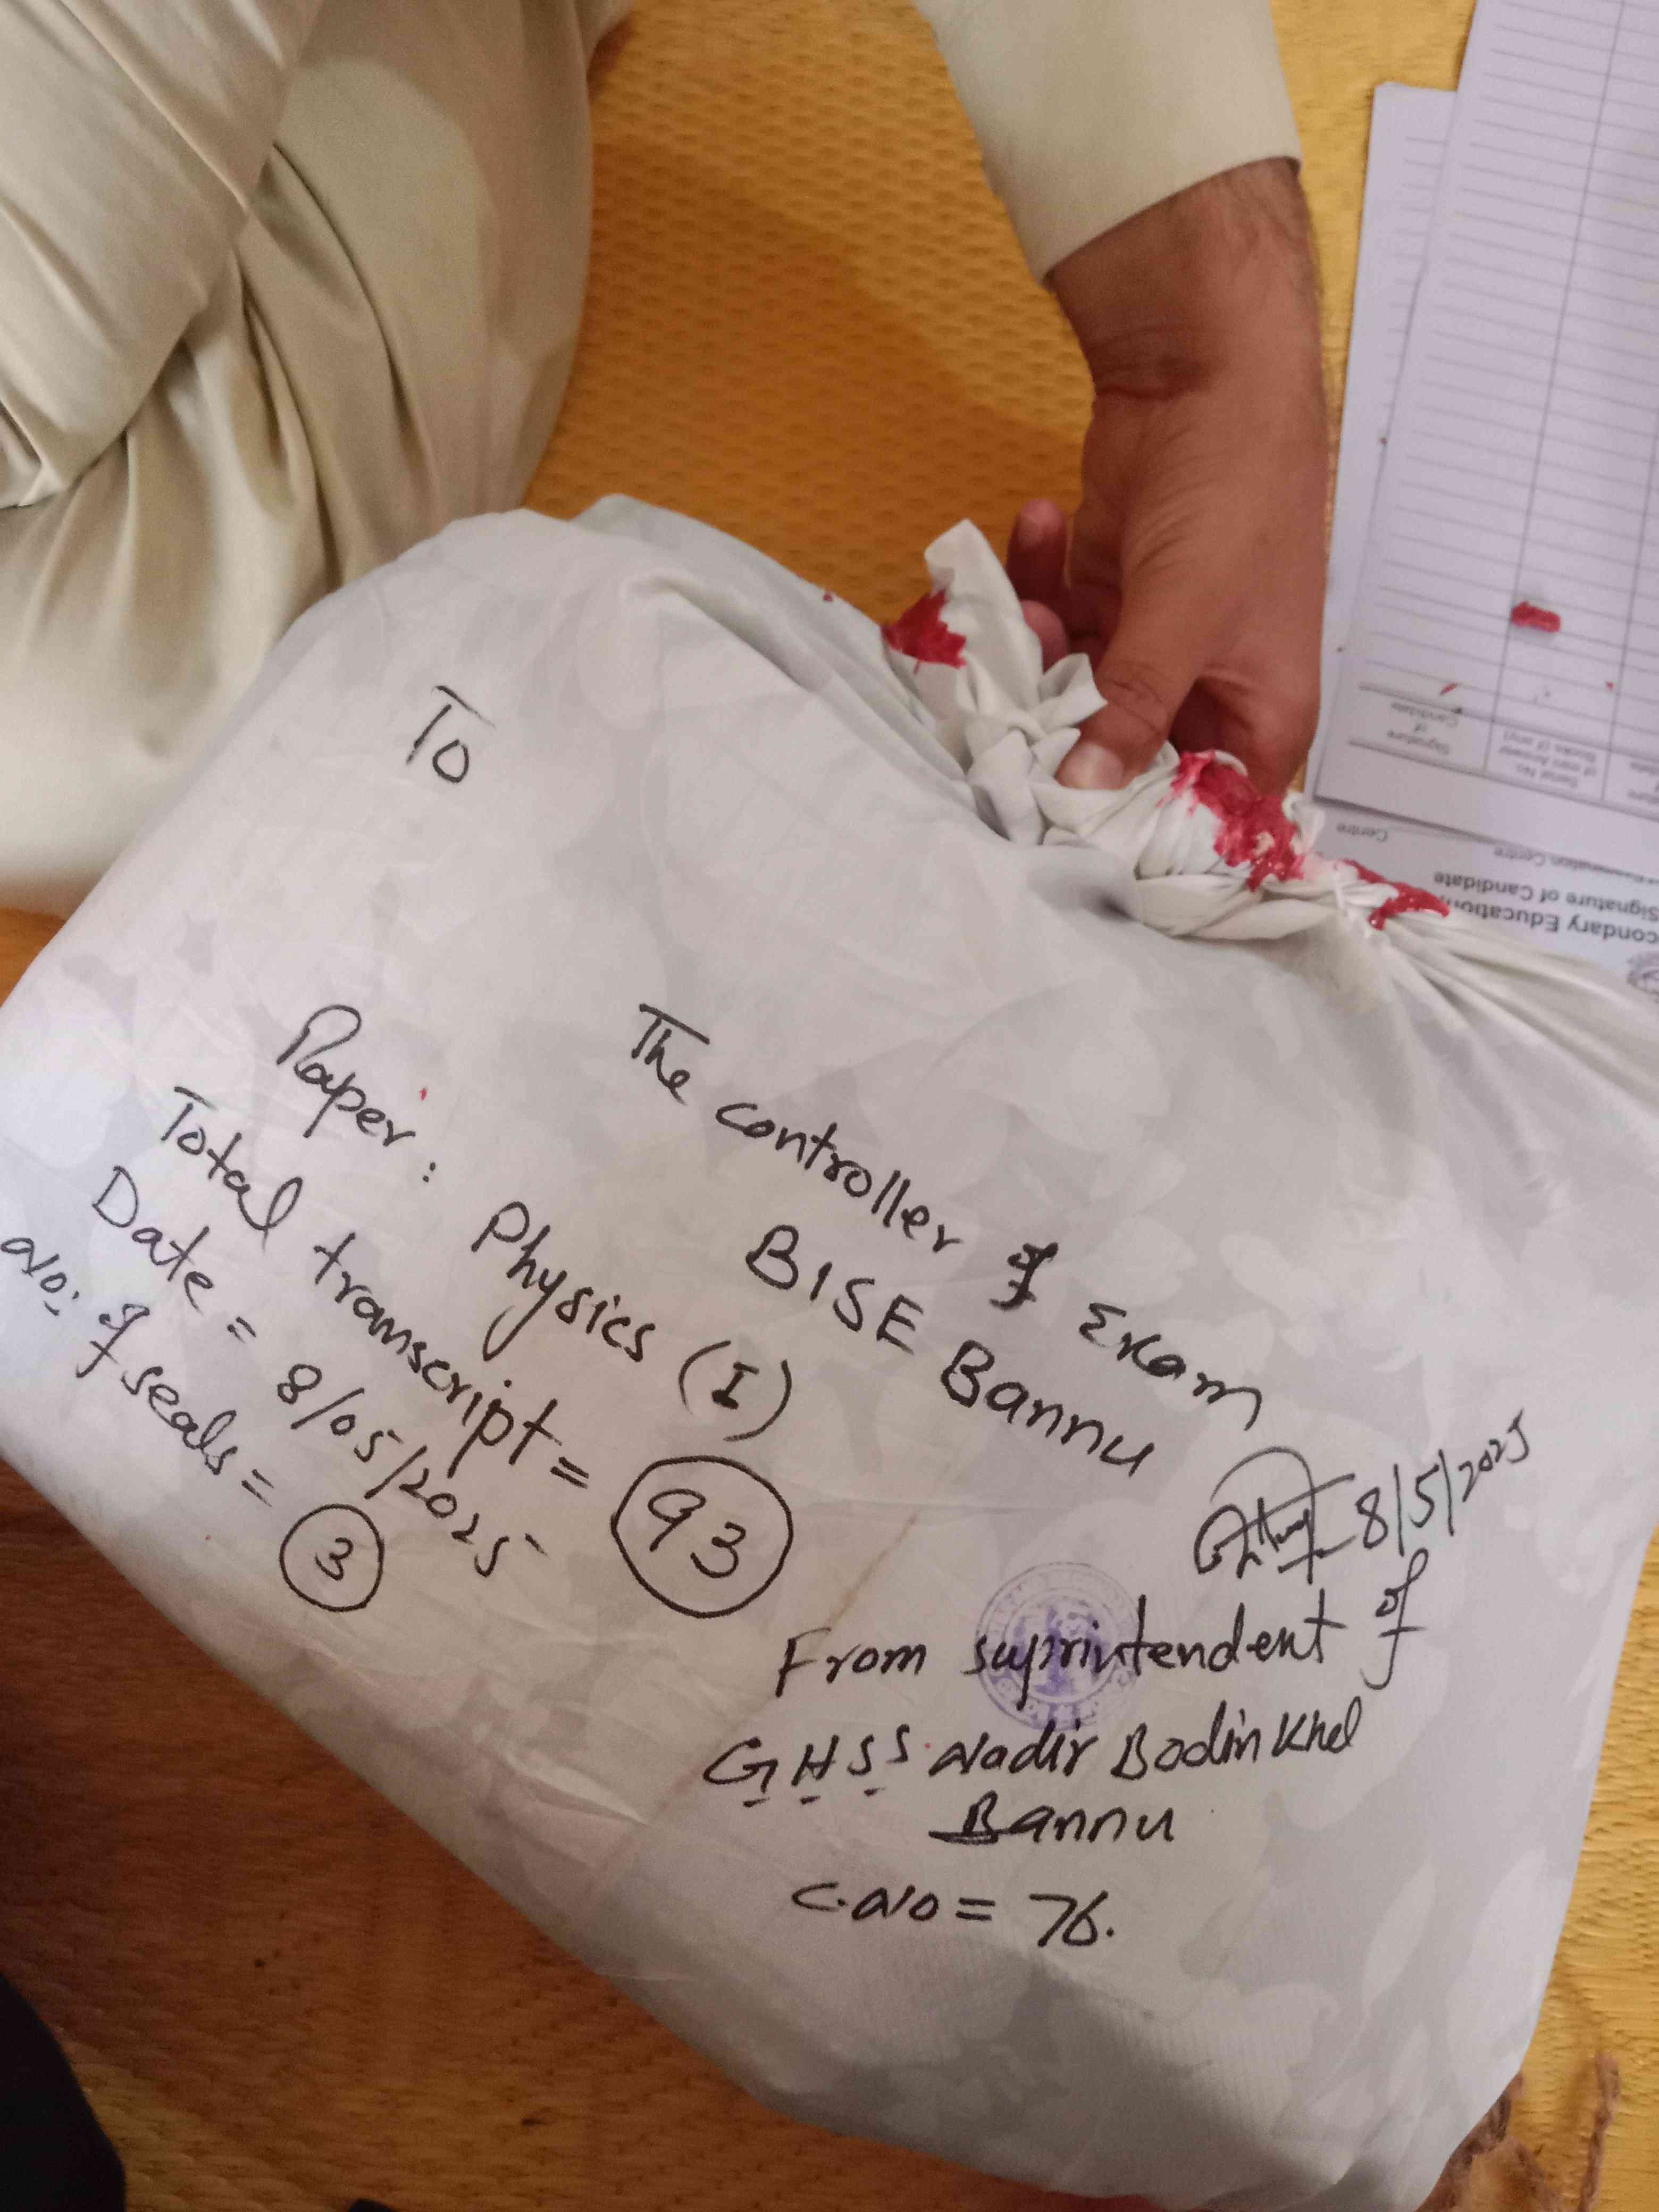 To
The controller of Exam
BISE Bannu
Paper: Physics (I)
Total transcript = 93
Date = 8/05/2025
No: of seals = 3
8/5/2025
From suprintendent of
G H S S Nadir Bodin Khel
Bannu
C.No = 76.
condary Education
Signature of Candidate
Centre
Signature
of
Candidate
Serial No.